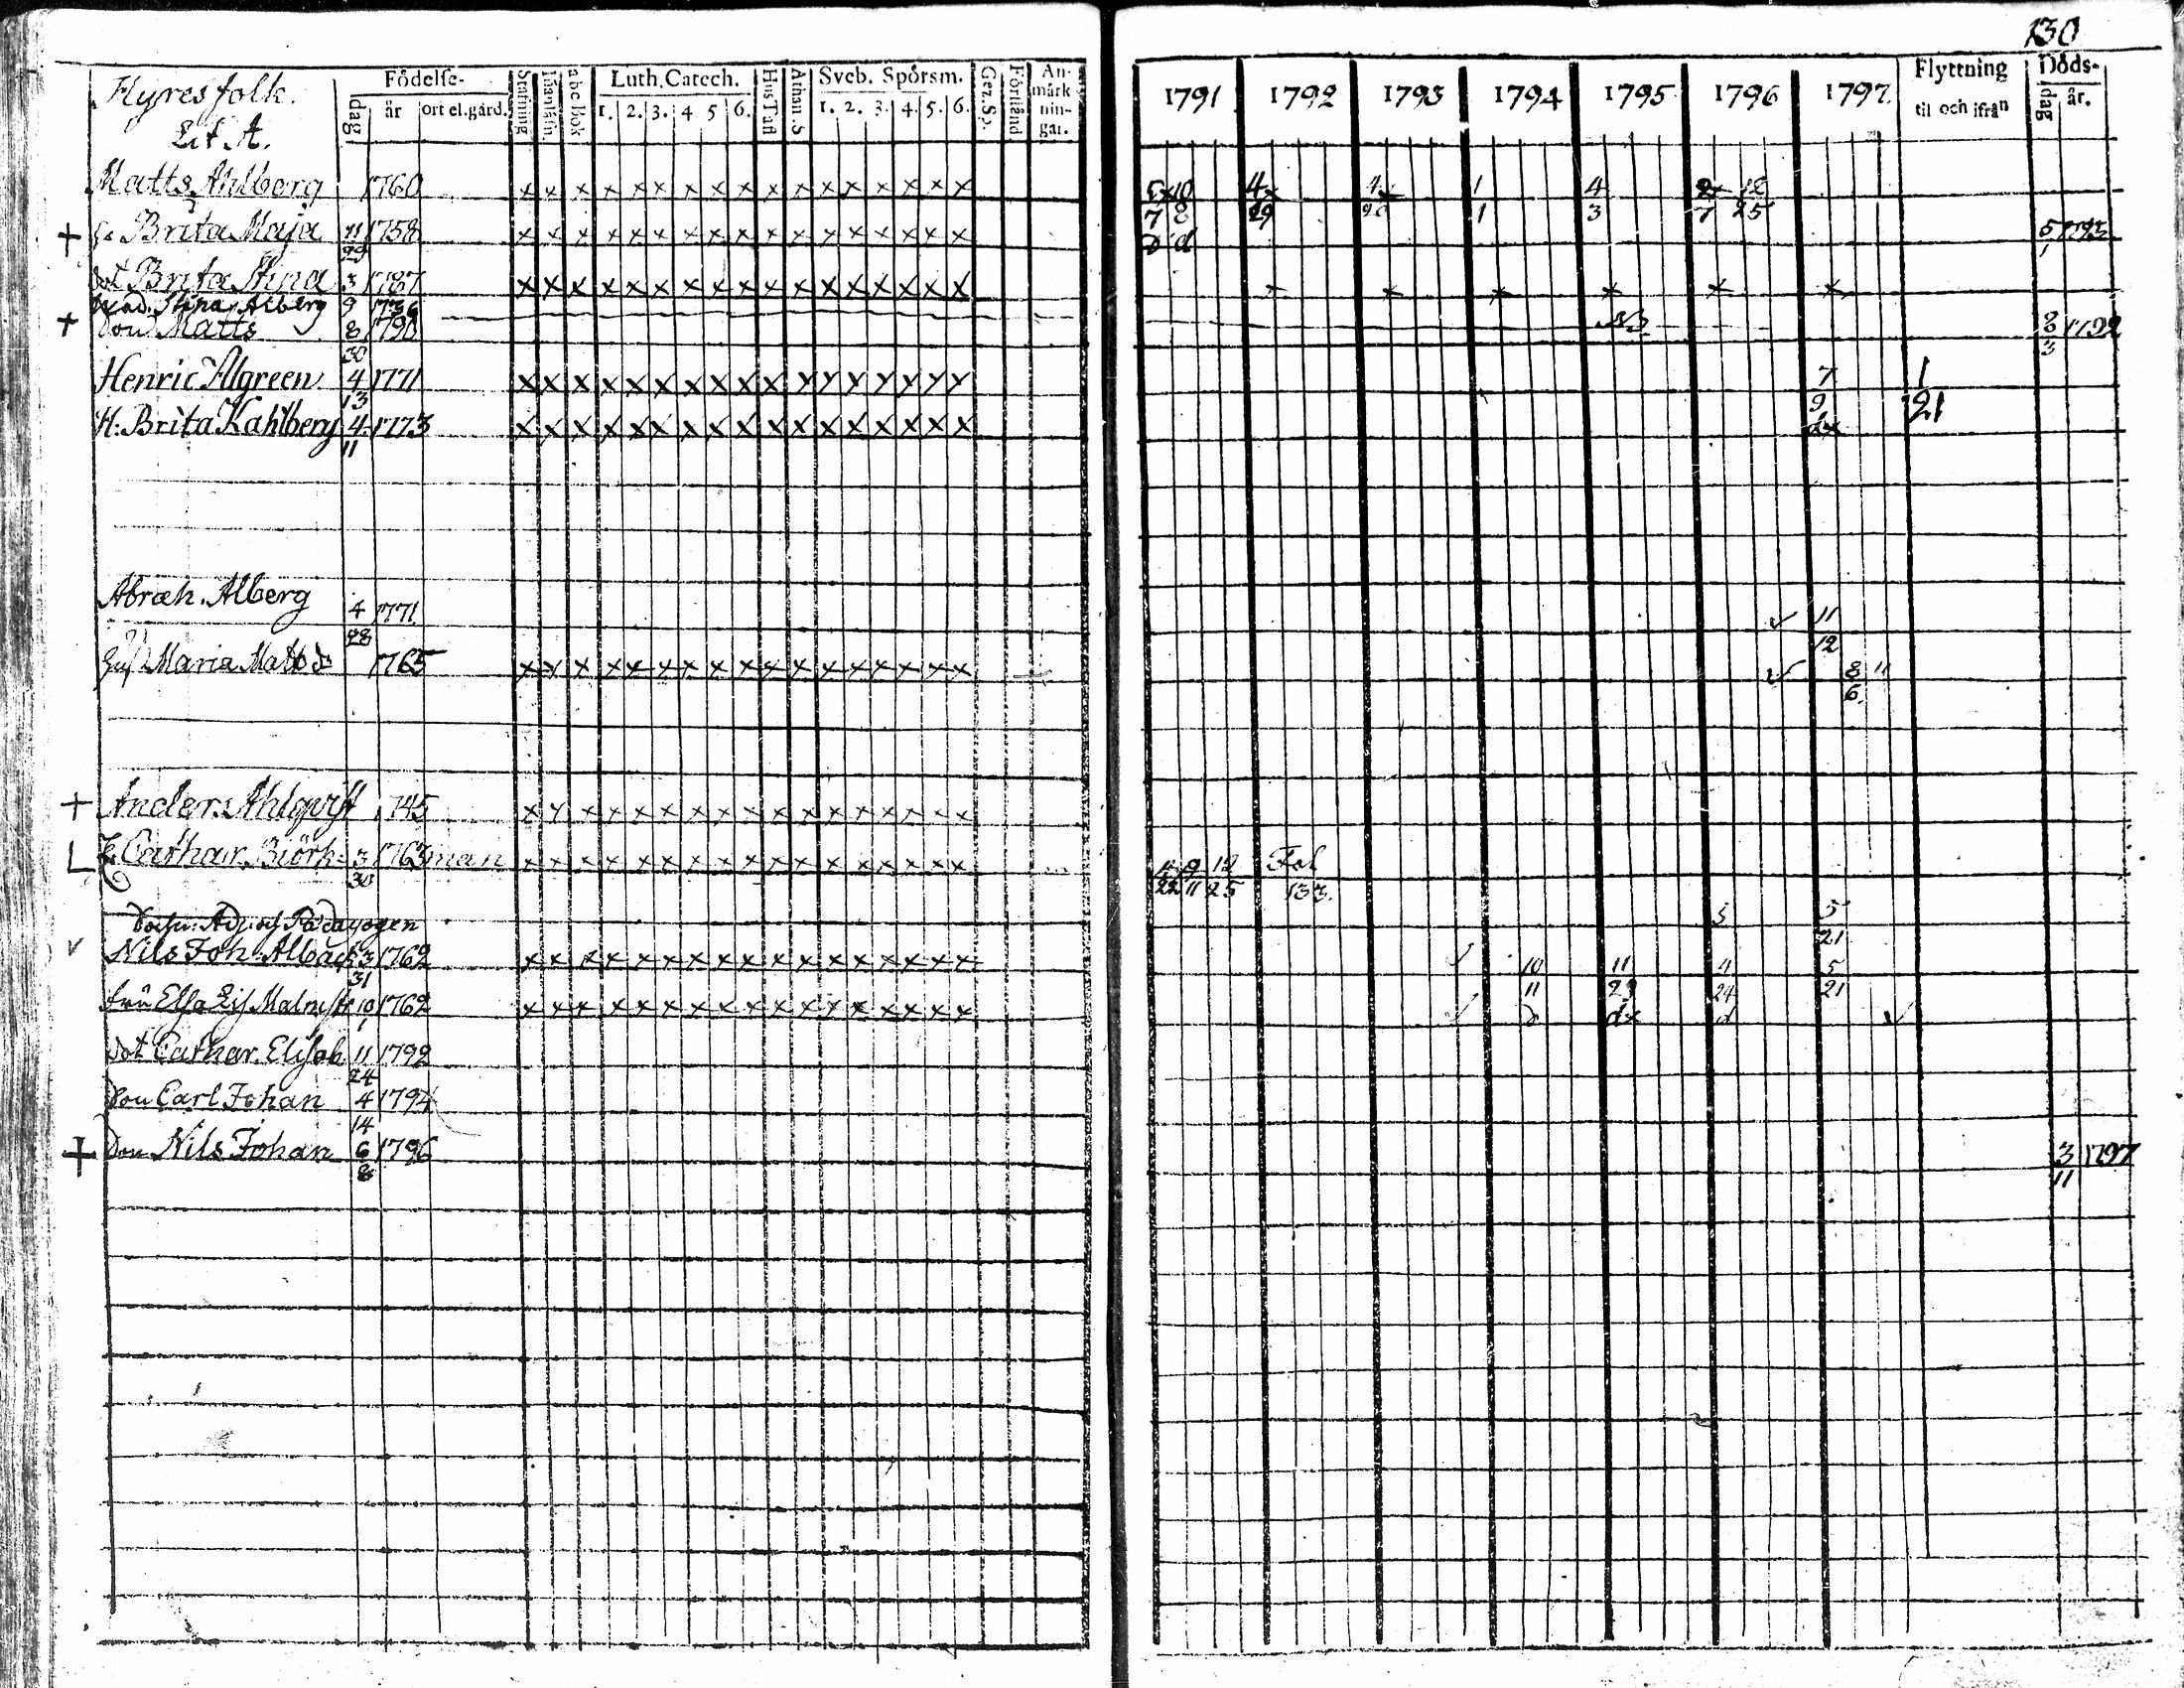 130
Hyresfolk.
Lit. A.
Födelse-
dag år ort el. gård.
Stafning
abc bok
Luth. Catech.
1. 2. 3. 4 5 6.
Hus Tafl
Athan. S
Sveb. Spörsm.
1. 2. 3. 4. 5. 6.
Gez. Sp.
Förstånd
An-
märk-
nin-
gar.
1791 1792 1793 1794 1795 1796 1797.
Flyttning
til och ifrån
Döds-
dag år.
Matts Ahlberg 1760 x x x x x x x x x x x x x x x x x
4 4 1 4
7 8 29 1 3 7 25
+ Brita Maja 11 1758 x x x x x x x x x x x x x x x x x 5 1793
29 d d 1
dot Brita Stina 3 1787 x x x x x x x x x x x x x x x x x
Stina Alberg 9 1736
+ Son Matts 8 1790 8 1792
30 3
Henric Algreen 4 1771 x x x x x x x x x x x x x x x x x 7 1
13 9 21
H: Brita Kahlberg 4 1773 x x x x x x x x x x x x x x x x x dx
11
Abrah. Alberg
4 1771 11
28 12
Maria Matts d:r 1765 x x x x x x x x x x x x x x x x x 8 11
6.
+ Anders Ahlqvist 1745 x x x x x x x x x x x x x x x x x
Cathar. Biörk= 3 1763 man x x x x x x x x x x x x x x x x x 9 12 Fol
30 22 11 25 133.
Adj. och Pædagogen 5 5
21
Nils Joh. 3 1762 x x x x x x x x x x x x x x x x x 10 11 4 5
31 11 23 24 21
fru Elsa Lis. 10 1762 x x x x x x x x x x x x x x x x x d dx d
1
dot Cathar. Elisab 11 1792
24
Son Carl Johan 4 1794
14
+ Son Nils Johan 6 1796 3 1797
8 11